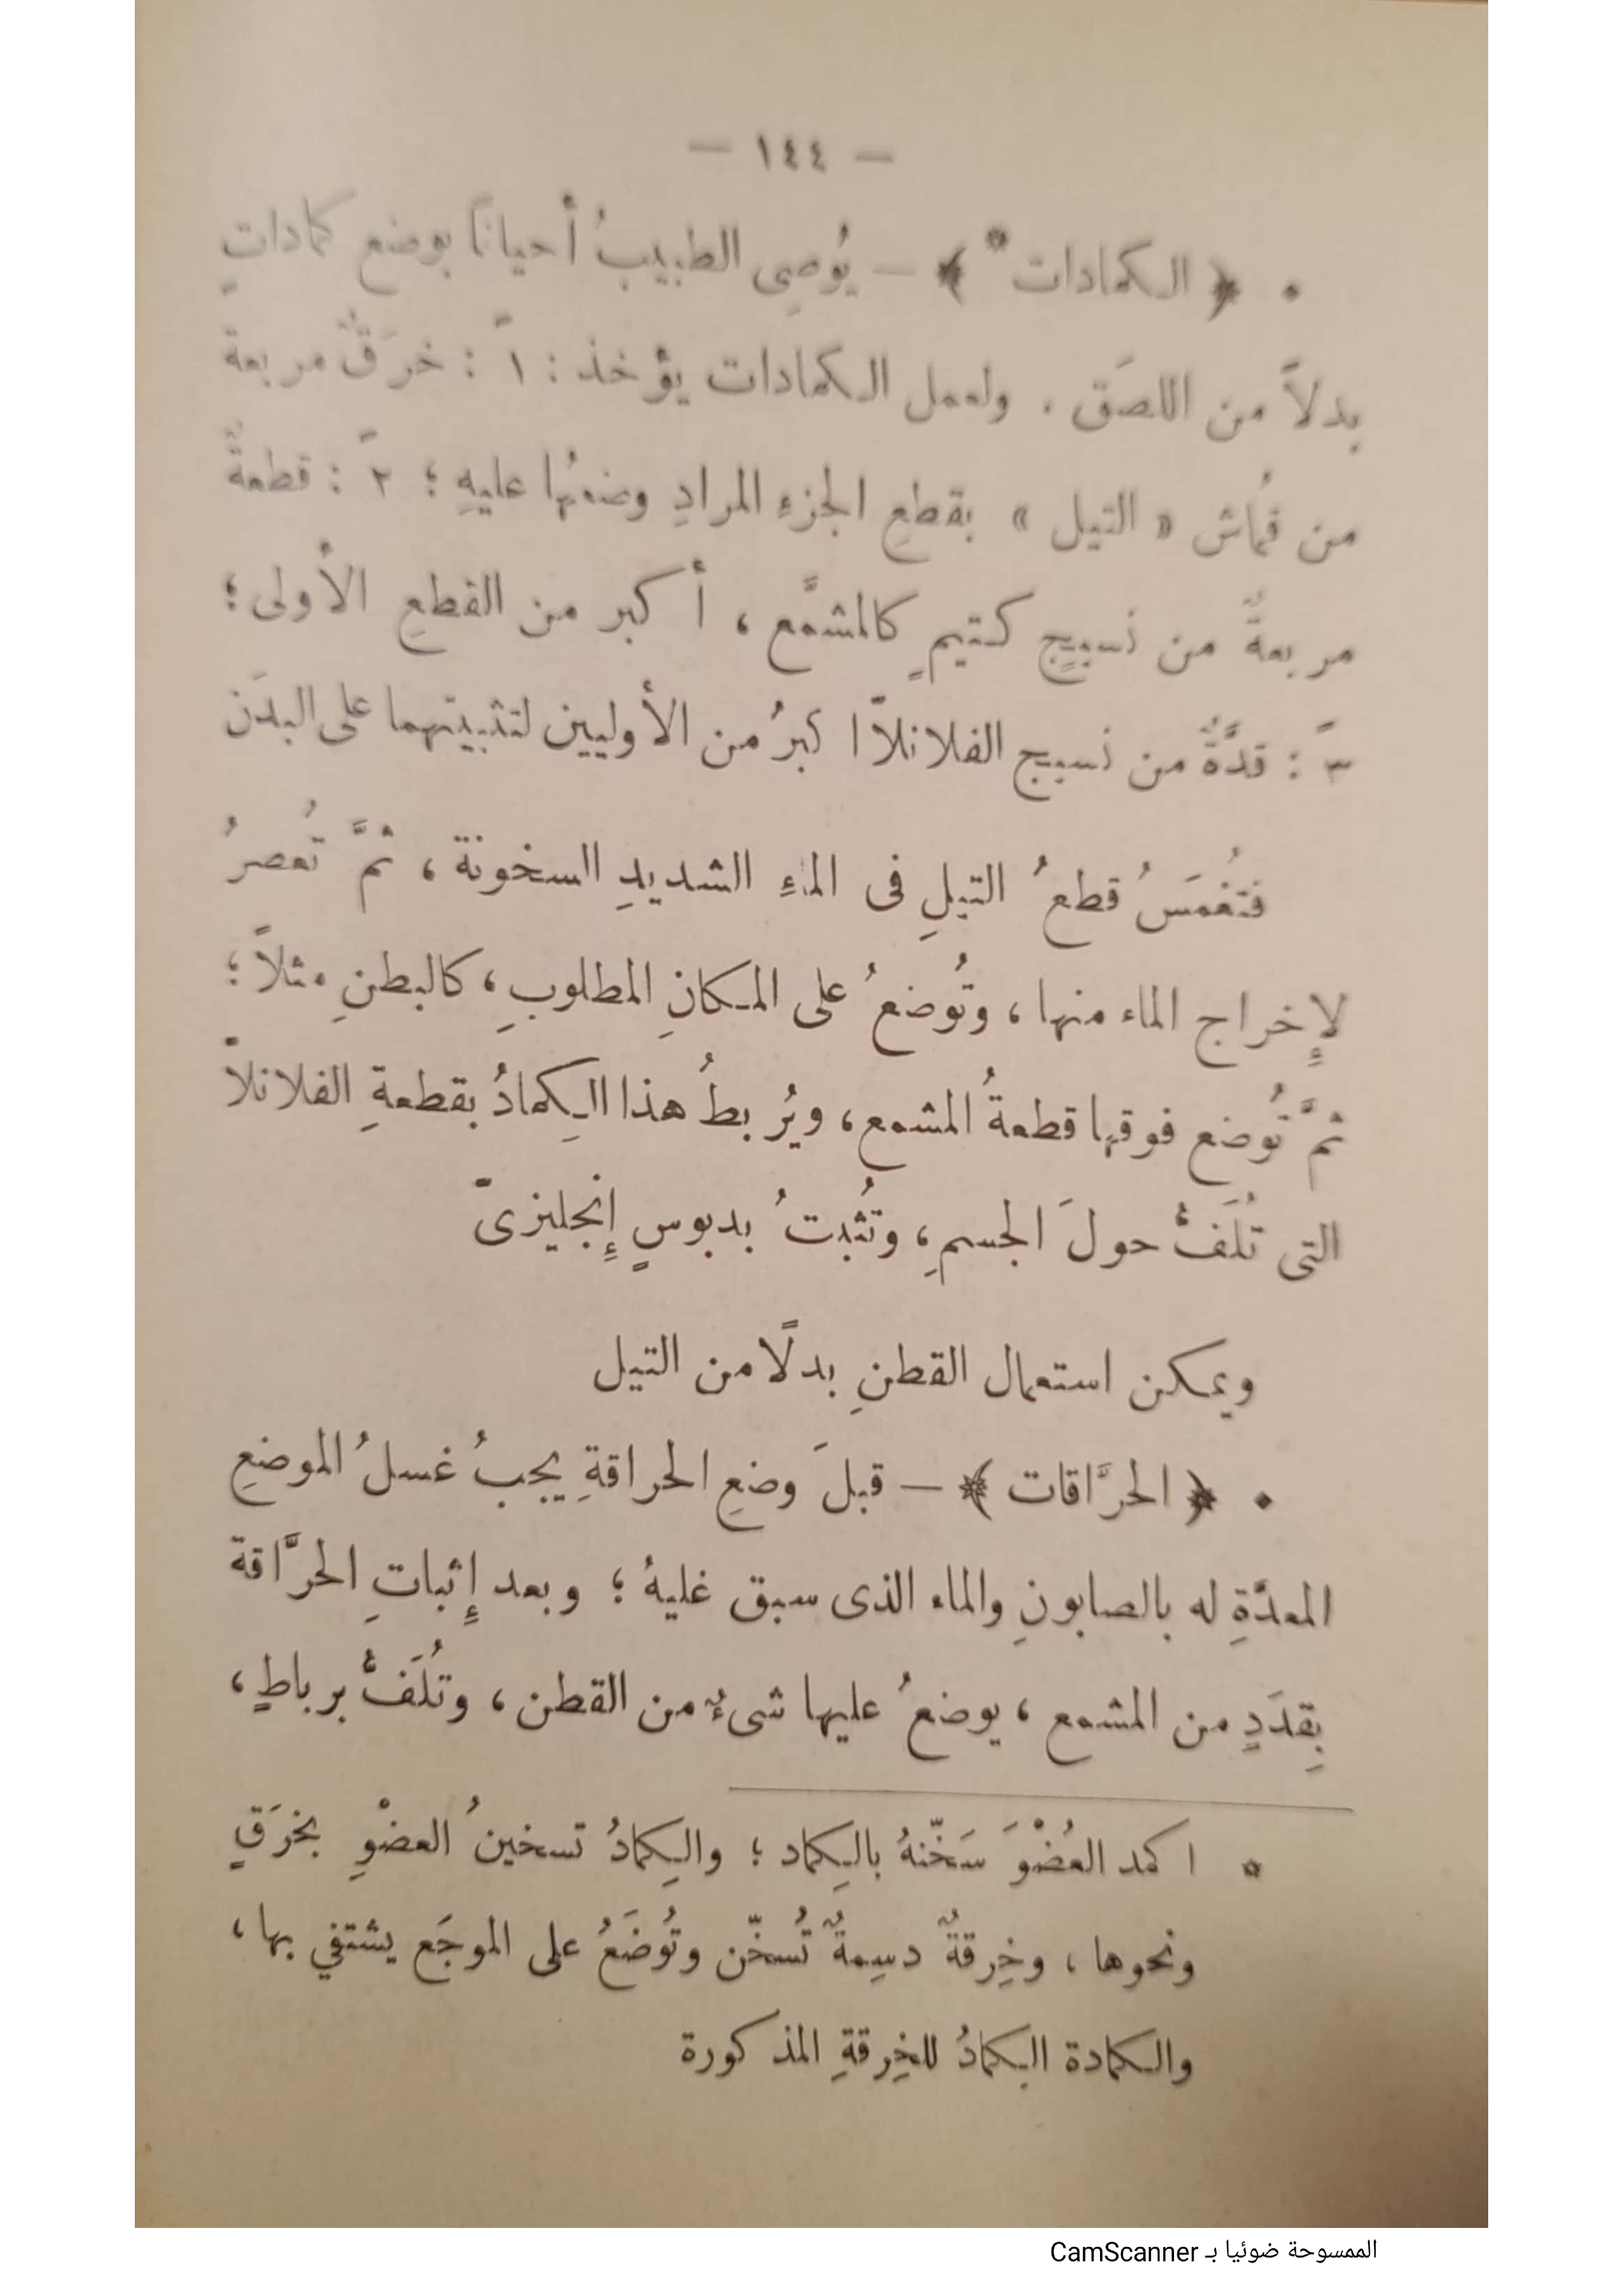 — ١٤٤ —
• ﴿ الكمادات * ﴾ — يُوصِى الطبيبُ أحيانًا بوضع كماداتٍ
بدلاً من اللصَق . ولعمل الكمادات يؤخذ : ١ً : خرَقٌ مربعة
من قُماش « التيل » بقطعِ الجزءِ المرادِ وضعُها عليهِ ؛ ٢ً : قطعةٌ
مربعةٌ من نسيجٍ كتيمٍ كالمشمَّع ، أكبر من القطعِ الأولى ؛
٣ً : قدَّةٌ من نسيج الفلانلاّ اكبرُ من الأوليين لتثبيتهما على البدَن
فتُغمَسُ قطعُ التيلِ فى الماءِ الشديدِ السخونة ، ثمَّ تُعصرُ
لإِخراج الماء منها ، وتُوضعُ على المكانِ المطلوبِ ، كالبطنِ مثلاً ؛
ثمَّ تُوضع فوقها قطعةُ المشمع ، ويُربطُ هذا الكِمادُ بقطعةِ الفلانلاّ
التى تُلَفُّ حولَ الجسمِ ، وتُثبتُ بدبوسٍ إِنجليزىّ
ويمكن استعمال القطنِ بدلًا من التيل
• ﴿ الحرَّاقات ﴾ — قبلَ وضعِ الحراقةِ يجبُ غسلُ الموضعِ
المعدَّةِ له بالصابونِ والماء الذى سبق غليهُ ؛ وبعد إِثباتِ الحرَّاقة
بِقدَدٍ من المشمع ، يوضعُ عليها شىءٌ من القطن ، وتُلَفُّ برباطٍ ،
* اكمد العُضْوَ سَخّنهُ بالكِماد ؛ والكِمادُ تسخينُ العضْوِ بخرَقٍ
ونحوها ، وخِرقةٌ دسِمةٌ تُسخّن وتُوضَعُ على الموجَع يشتفي بها ،
والكمادة الكمادُ للخِرقةِ المذكورة
الممسوحة ضوئيا بـ CamScanner